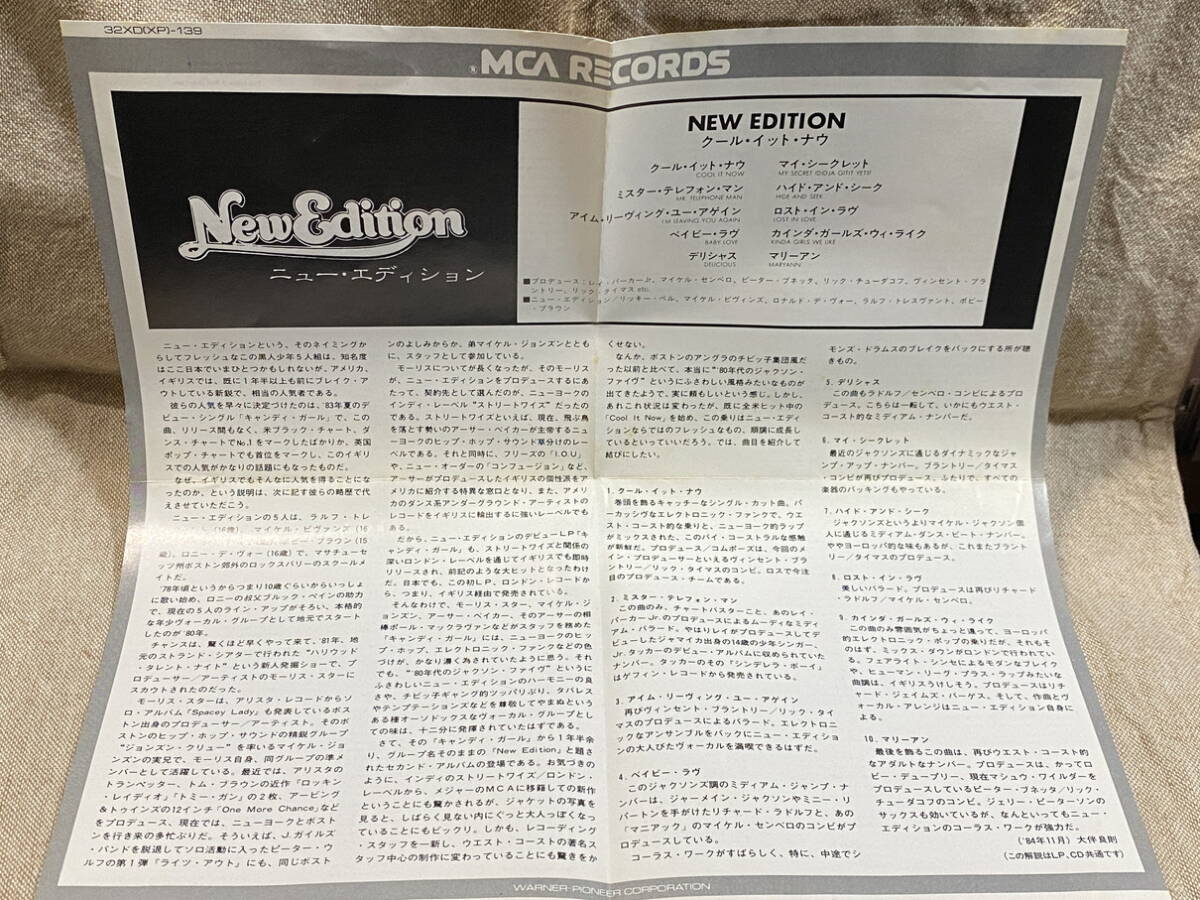 32XD(XP)-139
MCA RECORDS
NEW EDITION
クール・イット・ナウ
クール・イット・ナウ
COOL IT NOW
ミスター・テレフォン・マン
MR. TELEPHONE MAN
アイム・リーヴィング・ユー・アゲイン
I'M LEAVING YOU AGAIN
ベイビー・ラヴ
BABY LOVE
デリシャス
DELICIOUS
マイ・シークレット
MY SECRET (DIDJA GITIT YET?)
ハイド・アンド・シーク
HIDE AND SEEK
ロスト・イン・ラヴ
LOST IN LOVE
カインダ・ガールズ・ウィ・ライク
KINDA GIRLS WE LIKE
マリーアン
MARYANN
■プロデュース:レイ・パーカーJr., マイケル・センベロ、ピーター・ブネッタ、リック・チューダコフ、ヴィンセント・ブラ
ントリー、リック・タイマス etc.
■ニュー・エディション/リッキー・ベル、マイケル・ビヴィンズ、ロナルド・デ・ヴォー、ラルフ・トレスヴァント、ボビー
・ブラウン
New Edition
ニュー・エディション
ニュー・エディションという、そのネイミングか
らしてフレッシュなこの黒人少年5人組は、知名度
はここ日本でいまひとつかもしれないが、アメリカ、
イギリスでは、既に1年半以上も前にブレイク・ア
ウトしている新鋭で、相当の人気者である。
彼らの人気を早々に決定づけたのは、'83年夏のデ
ビュー・シングル「キャンディ・ガール」で、この
曲、リリース間もなく、米ブラック・チャート、ダ
ンス・チャートでNo.1をマークしたばかりか、英国
ポップ・チャートでも首位をマークし、このイギリ
スでの人気がかなりの話題にもなったものだ。
なぜ、イギリスでもそんなに人気を得ることにな
ったのか、という説明は、次に記す彼らの略歴で代
えさせていただこう。
ニュー・エディションの5人は、ラルフ・トレ
マイケル・ビヴァンズ(16
ビー・ブラウン(15
歳)、ロニー・デ・ヴォー(16歳)で、マサチューセ
ッツ州ボストン郊外のロックスバリーのスクールメ
イトだ。
'78年頃というからつまり10歳ぐらいからいっしょ
に歌い始め、ロニーの叔父ブルック・ペインの助力
で、現在の5人のライン・アップがそろい、本格的
な年少ヴォーカル・グループとして地元でスタート
したのが'80年。
チャンスは、驚くほど早くやって来て、'81年、地
元のストランド・シアターで行われた“ハリウッド
・タレント・ナイト”という新人発掘ショーで、プ
ロデューサー/アーティストのモーリス・スターに
スカウトされたのだった。
モーリス・スターは、アリスタ・レコードからソ
ロ・アルバム「Spacey Lady」も発表しているボス
トン出身のプロデューサー/アーティスト。そのボ
ストンのヒップ・ホップ・サウンドの精鋭グループ
“ジョンズン・クリュー”を率いるマイケル・ジョ
ンズンの実兄で、モーリス自身、同グループの準メ
ンバーとして活躍している。最近では、アリスタの
トランペッター、トム・ブラウンの近作「ロッキン
・レイディオ」「トミー・ガン」の2枚、アービング
&トゥインズの12インチ「One More Chance」など
をプロデュース、現在では、ニューヨークとボスト
ンを行き来の多忙ぶりだ。そういえば、J.ガイルズ
・バンドを脱退してソロ活動に入ったピーター・ウ
ルフの第1弾「ライツ・アウト」にも、同じボスト
ンのよしみからか、弟マイケル・ジョンズンととも
に、スタッフとして参加している。
モーリスについてが長くなったが、そのモーリス
が、ニュー・エディションをプロデュースするにあ
たって、契約先として選んだのが、ニューヨークの
インディ・レーベル“ストリートワイズ”だったの
である。ストリートワイズといえば、現在、飛ぶ鳥
を落とす勢いのアーサー・ベイカーが主宰するニュ
ーヨークのヒップ・ホップ・サウンド草分けのレー
ベルである。それと同時に、フリーズの「I.O.U」
や、ニュー・オーダーの「コンフュージョン」など、
アーサーがプロデュースしたイギリスの個性派をア
メリカに紹介する特異な窓口となり、また、アメリ
カのダンス系アンダーグラウンド・アーティストの
レコードをイギリスに輸出するに強いレーベルでも
ある。
だから、ニュー・エディションのデビューLP「キ
ャンディ・ガール」も、ストリートワイズと関係の
深いロンドン・レーベルを通じてイギリスでも即時
リリースされ、前記のような大ヒットとなったわけ
だ。日本でも、この初LP、ロンドン・レコードか
ら、つまり、イギリス経由で発売されている。
そんなわけで、モーリス・スター、マイケル・ジ
ョンズン、アーサー・ベイカー、そのアーサーの相
棒ポール・マックラヴァンなどがスタッフを務めた
「キャンディ・ガール」には、ニューヨークのヒッ
プ・ホップ、エレクトロニック・ファンクなどの色
づけが、かなり濃く為されていたように思う。それ
でも、“80年代のジャクソン・ファイヴ”というに
ふさわしいニュー・エディションのハーモニーの良
さや、チビッ子ギャング的ツッパリぶり、タバレス
やテンプテーションズなどを尊敬してやまぬという
ある種オーソドックスなヴォーカル・グループとし
ての味は、十二分に発揮されていたはずである。
さて、その「キャンディ・ガール」から1年半余
り、グループ名そのままの「New Edition」と題さ
れたセカンド・アルバムの登場である。お気づきの
ように、インディのストリートワイズ/ロンドン・
レーベルから、メジャーのMCAに移籍しての新作
ということにも驚かされるが、ジャケットの写真を
見ると、しばらく見ない内にぐっと大人っぽくなっ
ていることにもビックリ。しかも、レコーディング
・スタッフを一新し、ウエスト・コーストの著名ス
タッフ中心の制作に変わっていることにも驚きをか
くせない。
なんか、ボストンのアングラのチビッ子集団風だ
った以前と比べて、本当に“80年代のジャクソン・
ファイヴ”というにふさわしい風格みたいなものが
出てきたようで、実に頼もしいという感じ。しかし、
あれこれ状況は変わったが、既に全米ヒット中の
「Cool It Now」を始め、この乗りはニュー・エディ
ションならではのフレッシュなもの、順調に成長し
ているといっていいだろう。では、曲目を紹介して
結びにしたい。
1. クール・イット・ナウ
巻頭を飾るキャッチーなシングル・カット曲。パ
ーカッシヴなエレクトロニック・ファンクで、ウエ
スト・コースト的な乗りと、ニューヨーク的ラップ
がミックスされた、このバイ・コースタルな感触
が新鮮だ。プロデュース/コムポーズは、今回のメ
イン・プロデューサーといえるヴィンセント・ブラ
ントリー/リック・タイマスのコンビ。ロスで今注
目のプロデュース・チームである。
2. ミスター・テレフォン・マン
この曲のみ、チャートバスターこと、あのレイ・
パーカーJr.のプロデュースによるムーディなミディ
アム・バラード。やはりレイがプロデュースしてデ
ビューしたジャマイカ出身の14歳の少年シンガー、
Jr.タッカーのデビュー・アルバムに収められていた
ナンバー。タッカーのその「シンデレラ・ボーイ」
はゲフィン・レコードから発売されている。
3. アイム・リーヴィング・ユー・アゲイン
再びヴィンセント・ブラントリー/リック・タイ
マスのプロデュースによるバラード。エレクトロニ
ックなアンサンブルをバックにニュー・エディショ
ンの大人びたヴォーカルを満喫できるはずだ。
4. ベイビー・ラヴ
このジャクソンズ調のミディアム・ジャンプ・ナ
ンバーは、ジャーメイン・ジャクソンやミニー・リ
パートンを手がけたリチャード・ラドルフと、あの
「マニアック」のマイケル・センベロのコンビがプ
ロデュースしている。
コーラス・ワークがすばらしく、特に、中途でシ
モンズ・ドラムスのブレイクをバックにする所が聴
きもの。
5. デリシャス
この曲もラドルフ/センベロ・コンビによるプロ
デュース。こちらは一転して、いかにもウエスト・
コースト的なミディアム・ナンバーだ。
6. マイ・シークレット
最近のジャクソンズに通じるダイナミックなジャ
ンプ・アップ・ナンバー。ブラントリー/タイマス
・コンビが再びプロデュース。ふたりで、すべての
楽器のバッキングもやっている。
7. ハイド・アンド・シーク
ジャクソンズというよりマイケル・ジャクソン個
人に通じるミディアム・ダンス・ビート・ナンバー。
ややヨーロッパ的な味もあるが、これまたブラント
リー/タイマスのプロデュース。
8. ロスト・イン・ラヴ
美しいバラード。プロデュースは再びリチャード
・ラドルフ/マイケル・センベロ。
9. カインダ・ガールズ・ウィ・ライク
この曲のみ雰囲気がちょっと違って、ヨーロッパ
的エレクトロニック・ポップの乗りだが、それもそ
のはず、ミックス・ダウンがロンドンで行われてい
る。フェアライト・シンセによるモダンなブレイク
や、ヒューマン・リーグ・プラス・ラップみたいな
曲調は、イギリスうけしそう。プロデュースはリチ
ャード・ジェイムズ・バージス。そして、作曲とヴ
ォーカル・アレンジはニュー・エディション自身に
よる。
10. マリーアン
最後を飾るこの曲は、再びウエスト・コースト的
なアダルトなナンバー。プロデュースは、かつてロ
ビー・デュープリー、現在マシュウ・ワイルダーを
プロデュースしているピーター・ブネッタ/リック・
チューダコフのコンビ。ジェリー・ピーターソンの
サックスも効いているが、なんといってもニュー・
エディションのコーラス・ワークが強力だ。
('84年11月) 大伴良則
(この解説はLP、CD共通です)
WARNER-PIONEER CORPORATION